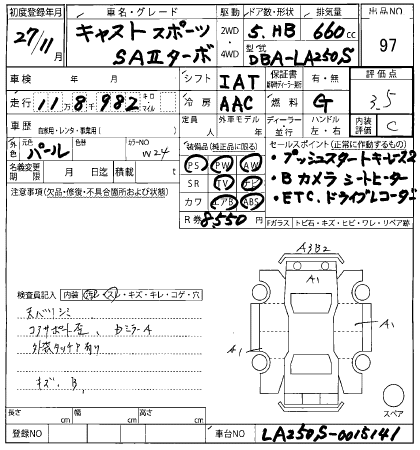 初度登録年月 車名・グレード 駆動 ドア数・形状 排気量 出品NO
27/11月 キャスト スポーツ SAⅡターボ 2WD 4WD 5.HB 660cc 97
型式 DBA-LA250S
車検 年 月 シフト IAT 保証書 有・無 評価点
走行 11万8千982 キロ マイル 冷房 AAC 燃料 G 3.5
車歴 自家用・レンタ・事業用( ) 定員 人 外車モデル 年 ディーラー 並行 ハンドル 左・右 内装評価 C
外色 元色 パール 色替 カラーNO W24 装備品(純正品に限る) セールスポイント(正常に作動するもの)
名義変更期限 月 日迄 積載 t PS PW AW ・プッシュスタートキーレス2
注意事項(欠品・修復・不具合箇所および状態) SR TV ナビ ・Bカメラ シートヒーター
カワ エアB ABS ・ETC.ドライブレコーダー
R券 8550円 Fガラス トビ石・キズ・ヒビ・ワレ・リペア跡
A3 B2
A1
検査員記入 内装 汚レ・スレ・キズ・キレ・コゲ・穴
天ベリシミ
コアサポート左、DミラーA
外装タッチア有り
キズ、B
A1
A1
スペア
長さ cm 幅 cm 高さ cm
登録NO 車台NO LA250S-0015141